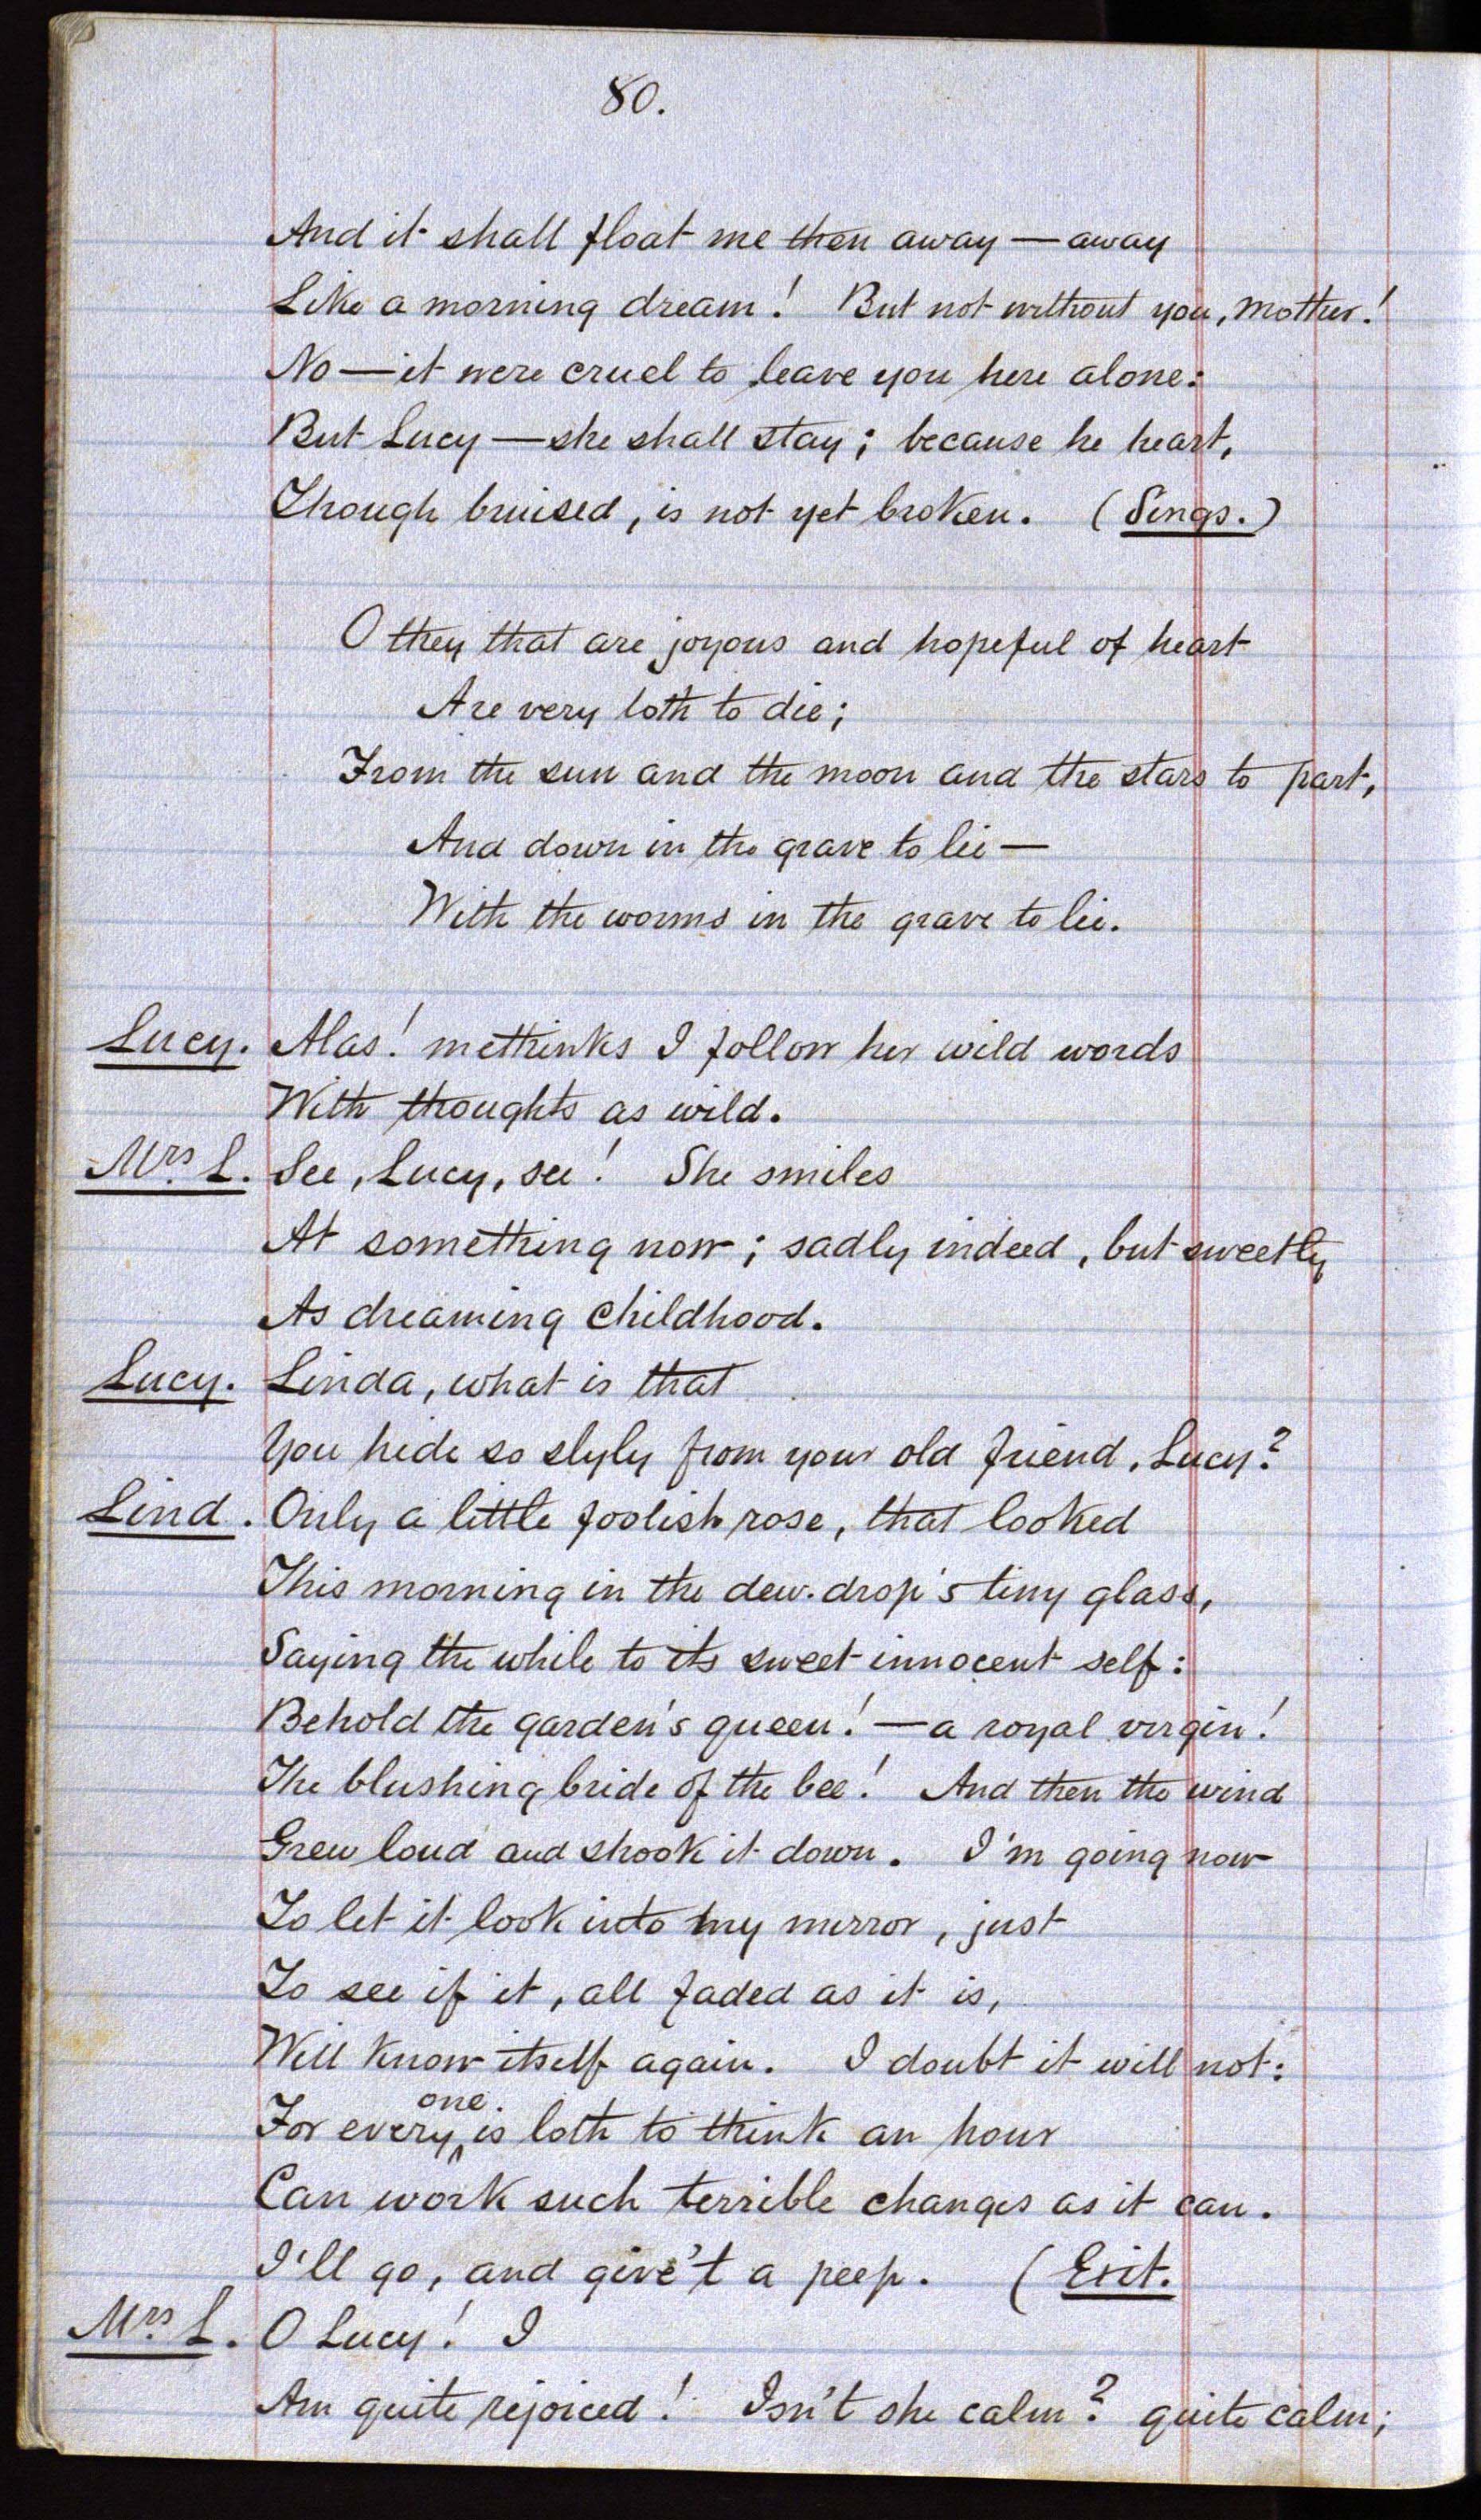 80.
And it shall float me then away — away
Like a morning dream! But not without you, mother!
No — it were cruel to leave you here alone:
But Lucy — she shall stay; because he heart,
Though bruised, is not yet broken. (Sings.)
O they that are joyous and hopeful of heart
Are very loth to die;
From the sun and the moon and the stars to part,
And down in the grave to lie —
With the worms in the grave to lie.
Lucy. Alas! methinks I follow her wild words
With thoughts as wild.
Mrs. L. See, Lucy, see! She smiles
At something now; sadly indeed, but sweetly
As dreaming childhood.
Lucy. Linda, what is that
You hide so slyly from your old friend, Lucy?
Lind. Only a little foolish rose, that looked
This morning in the dew-drop's tiny glass,
Saying the while to its sweet innocent self:
Behold the garden's queen! — a royal virgin!
The blushing bride of the bee! And then the wind
Grew loud and shook it down. I'm going now
To let it look into my mirror, just
To see if it, all faded as it is,
Will know itself again. I doubt it will not:
For every one is loth to think an hour
Can work such terrible changes as it can.
I'll go, and give't a peep. (Exit.
Mrs. L. O Lucy! I
Am quite rejoiced! Isn't she calm? quite calm;